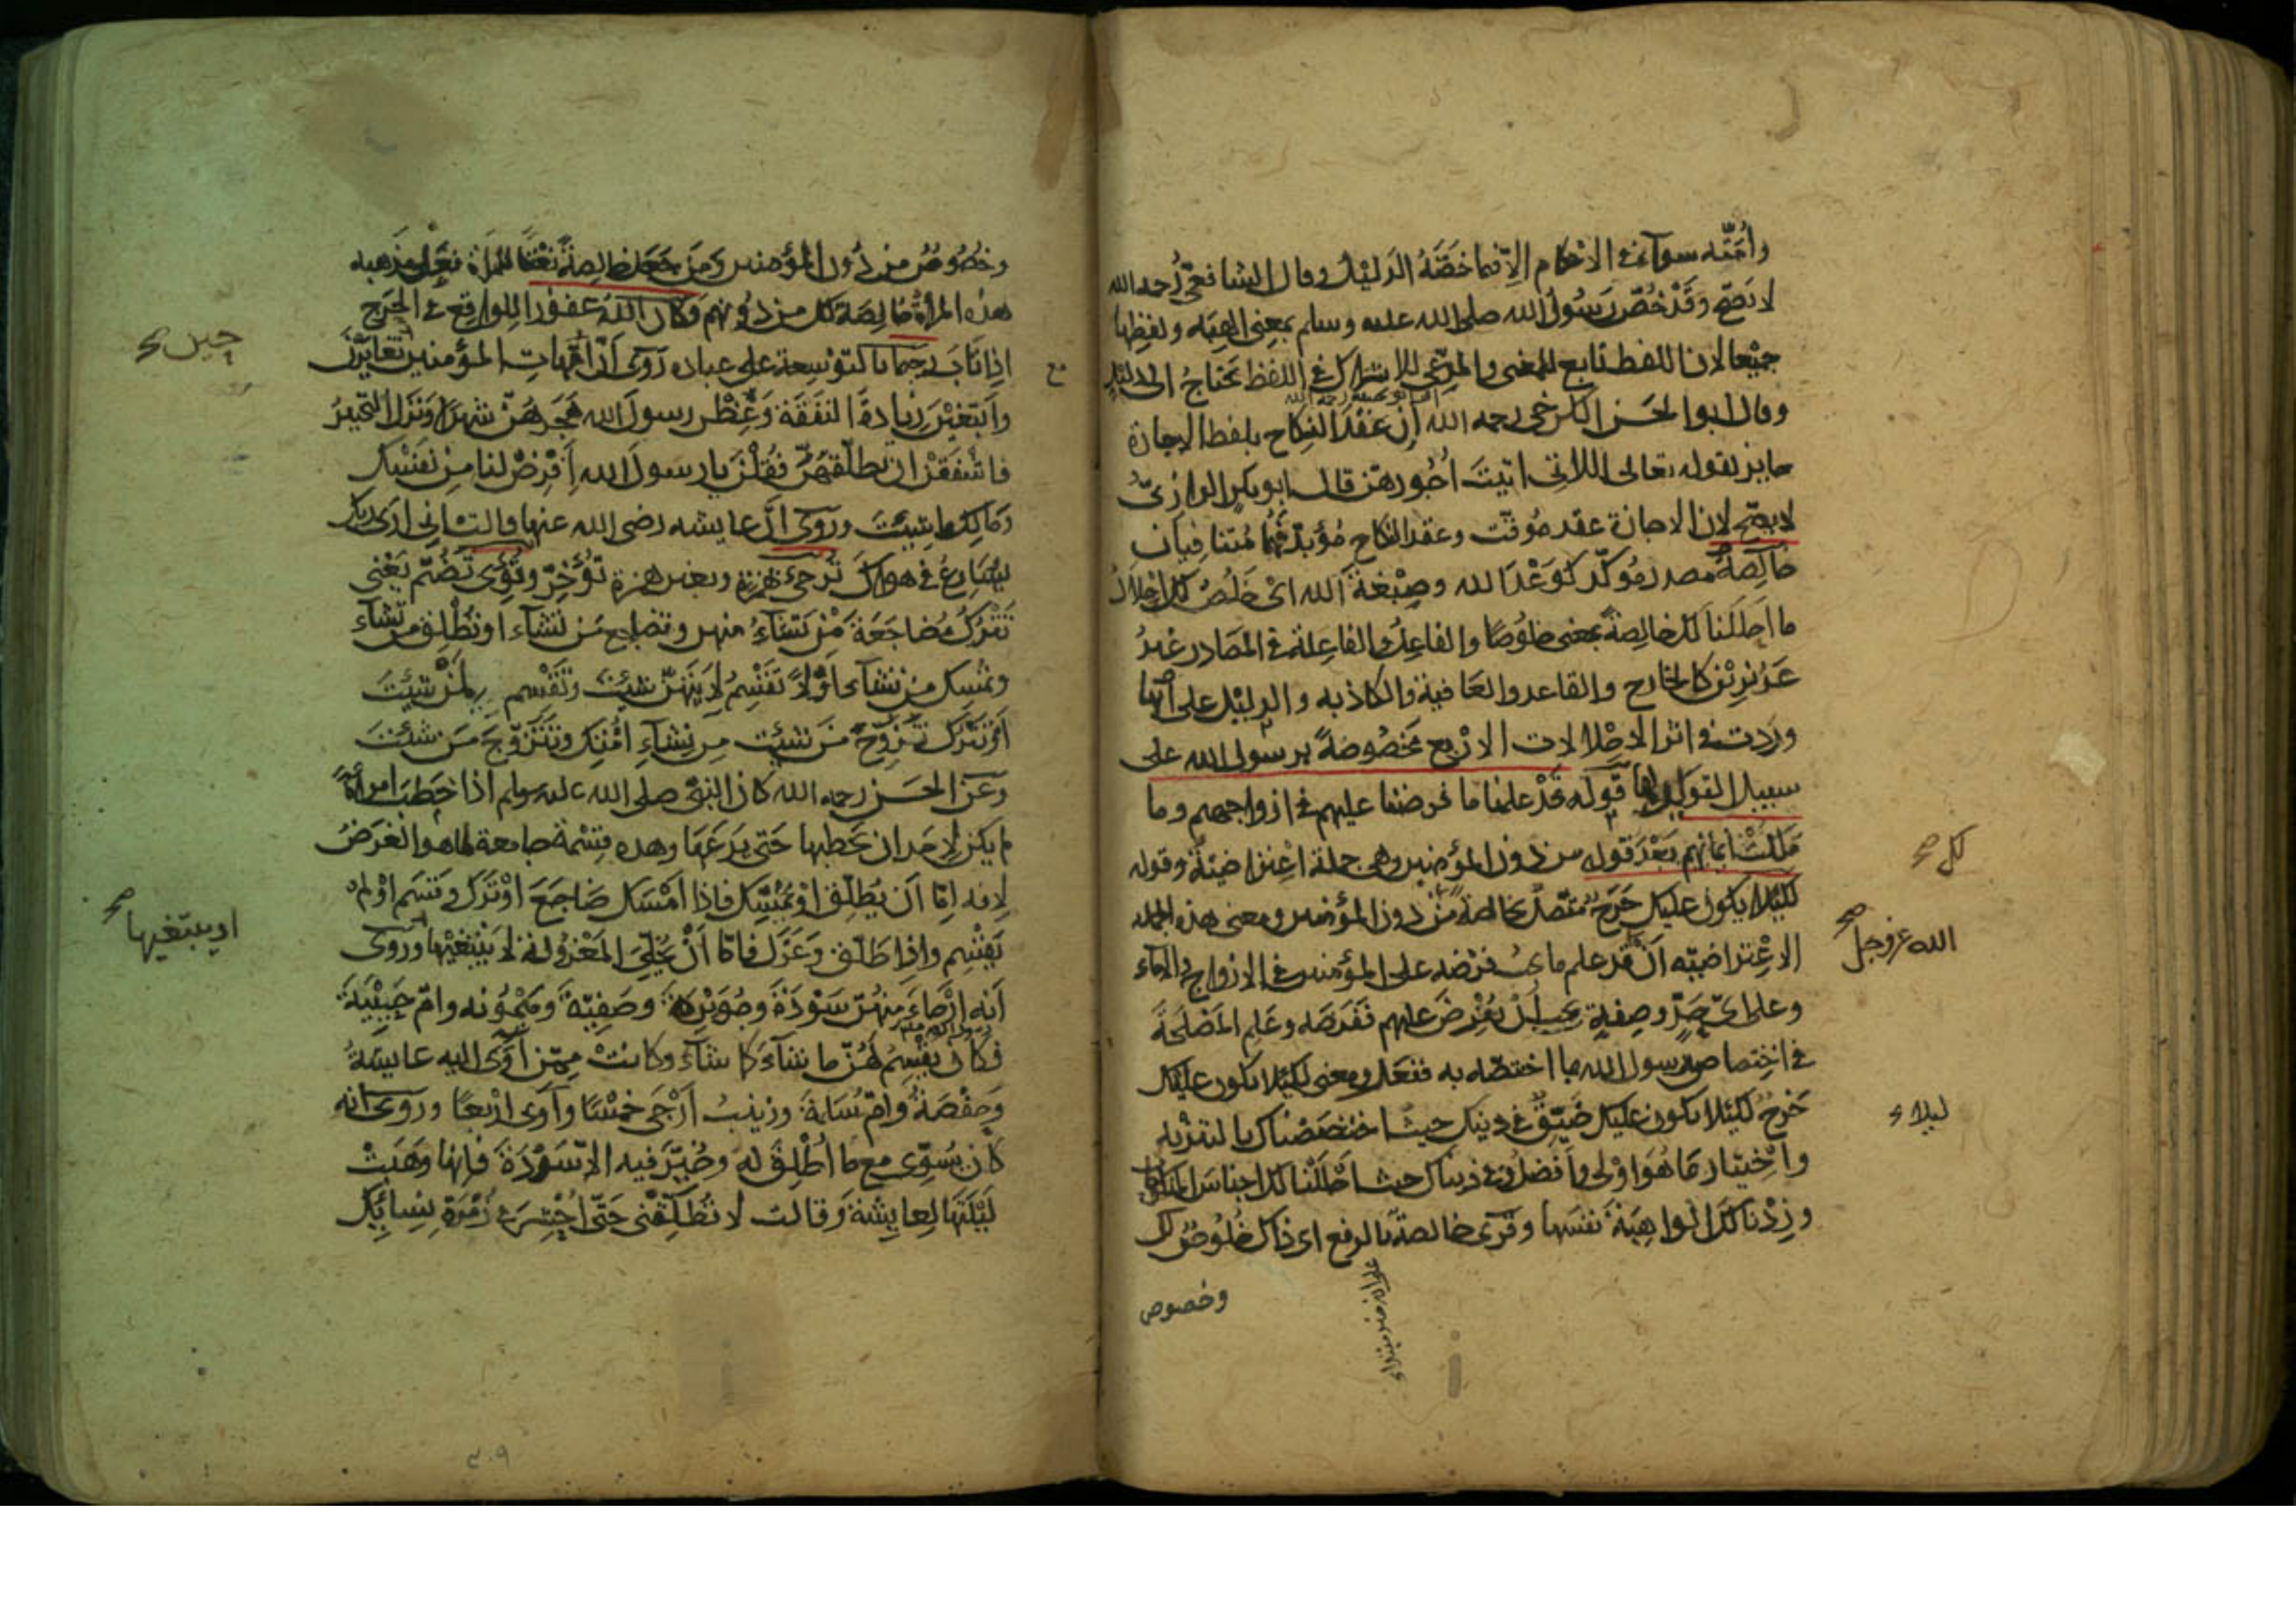 وأمّته سوآء في الاحكام الا فيما خصّه الدليل وقال الشافعي رحمه الله
لا تصح وقد خصّ رسول الله صلى الله عليه وسلم بمعنى الهبه ولفظها
جميعا لان اللفظ تابع للمعنى والمدّعى للاشتراك في اللفظ يحتاج الى دليل
وقال ابو الحسن الكرخي رحمه الله إن عقد النكاح بلفظ الاجارة
جايز لقوله تعالى اللاتي اتيت أجورهن قال ابو بكر الرازيّ
لا يصح لان الاجارة عقد موقت وعقد النكاح مؤبد فهما متنافيان
خالصة مصدر مؤكّد كوَعْدَ الله وصِبْغةَ الله اى خلص لك احلال
ما احللنا لك خالصةً بمعنى خلوصًا والفاعل والفاعلة في المصادر غير
عزيزين كالخارج والقاعد والعافية والكاذبه والدليل على انها
وردت في اثر الاحلالات الاربع مخصوصةً برسول الله على
سبيل التوكيد لها قوله قد علمنا ما فرضنا عليهم في ازواجهم وما
ملكت ايمانهم بعد قوله من دون المؤمنين وهي جملة اعتراضيّة وقوله
لكيلا يكون عليك حرج متصل بخالصة من دون المؤمنين ومعنى هذه الجمله
لك صح
الاعتراضيّه أنّ قد علم ما يجب فرضه على المؤمنين في الازواج والاماء
الله عز وجل صح
وعلى اىّ حدّ وصفة يجب أن يفرض عليهم ففرضه وعلم المصلحة
في اختصاص رسول الله بما اختصّه به ففعل ومعنى لكيلا يكون عليك
حرج لكيلا يكون عليك ضيق في دينك حيث اختصصناك بالتنزيه
ليلاء
واختيار ما هو اولى وأفضل وفي دنياك حيث احللنا لك اجناس المنكوحات
وزدنا لك الواهبة نفسها وقرئ خالصةٌ بالرفع اى ذاك خلوصٌ لك
وخصوص
وخصوصٌ من دون المؤمنين ومن جعل خالصة نعتًا للمرأة فعلى مذهبه
هذه المرأة خالصة لك من دونهم وكان الله غفورا للواقع في الحرج
اذا تاب رحيما بالتوسعة على عباده روى أنّ امّهات المؤمنين تغايرن
حين صح
وابتغين زيادة النفقة وغظن رسول الله فهجرهنّ شهرا ونزل التخيير
فاشفقن ان يطلّقهنّ فقلن يا رسول الله افرض لنا من نفسك
ومالك ما شيت وروى انّ عايشه رضى الله عنها قالت اني ارى ربك
يسارع في هواك ترجئ بهمزة وبغير همزة تؤخّر وتؤوى تضمّ يعنى
تترك مضاجعة من تشآء منهن وتضاجع من تشآء او تطلق من تشآء
وتمسك من تشآء أوْ لا تقسم لايّتهنّ شئت وتقسم لمن شيت
أو تترك تزوّج من شيت من نساء امّتك وتتزوّج من شئت
وعن الحسن رحمه الله كان النبي صلى الله عليه وسلم اذا خطب امرأة
لم يكن لاحد ان يخطبها حتى يدعها وهذه قسمة جامعة لما هو الغرض
لانه امّا أن يطلّق او يمسك فاذا أمسك ضاجع او ترك وقسم او لم
يقسم واذا طلّق وعزل فامّا أن يخلّى المعزولة لا يبتغيها وروى
او يبتغيها صح
أنه ارجاء منهنّ سودة وجويرية وصفيّة وميمونه وامّ حبيبة
فكان يقسم لهنّ ما شآء كما شآء وكانت ممّن آوى اليه عايشة
وحفصة وامّ سلمة وزينب أرجى خمسًا وآوى اربعًا وروى انه
كان يسوّى مع ما أطلق له وخيّر فيه الا سودة فانها وهبت
ليلتها لعايشة وقالت لا تطلّقنى حتى احشر في زمرة نسائك